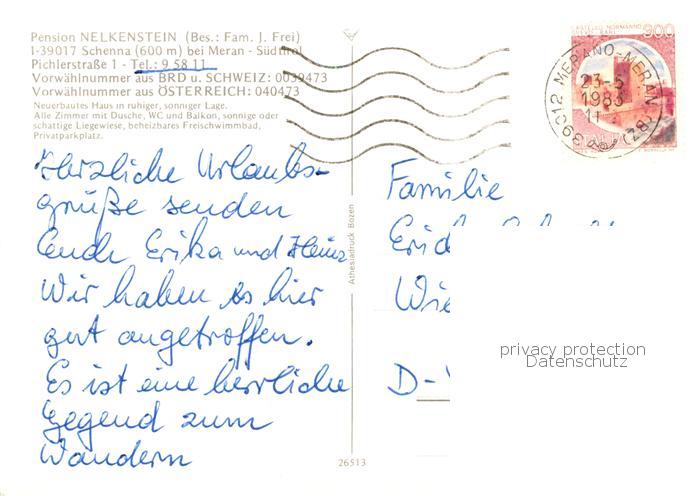 Pension NELKENSTEIN (Bes.: Fam. J. Frei)
I-39017 Schenna (600 m) bei Meran - Südtirol
Pichlerstraße 1 - Tel.: 9 58 11
Vorwählnummer aus BRD u. SCHWEIZ: 0039473
Vorwählnummer aus ÖSTERREICH: 040473
Neuerbautes Haus in ruhiger, sonniger Lage.
Alle Zimmer mit Dusche, WC und Balkon, sonnige oder
schattige Liegewiese, beheizbares Freischwimmbad,
Privatparkplatz.
Herzliche Urlaubs-
grüße senden
Euch Erika und Heinz
Wir haben es hier
gut angetroffen.
Es ist eine herrliche
Gegend zum
Wandern
Athesiadruck Bozen
26513
900
39012 MERANO-MERAN (BZ)
23-5
1983
11
Familie
D-
privacy protection
Datenschutz